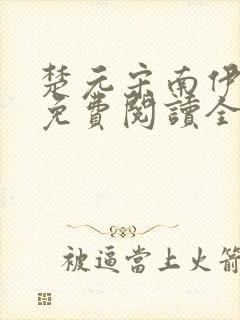 楚元宋南伊
免費閱讀全
被逼當上火箭